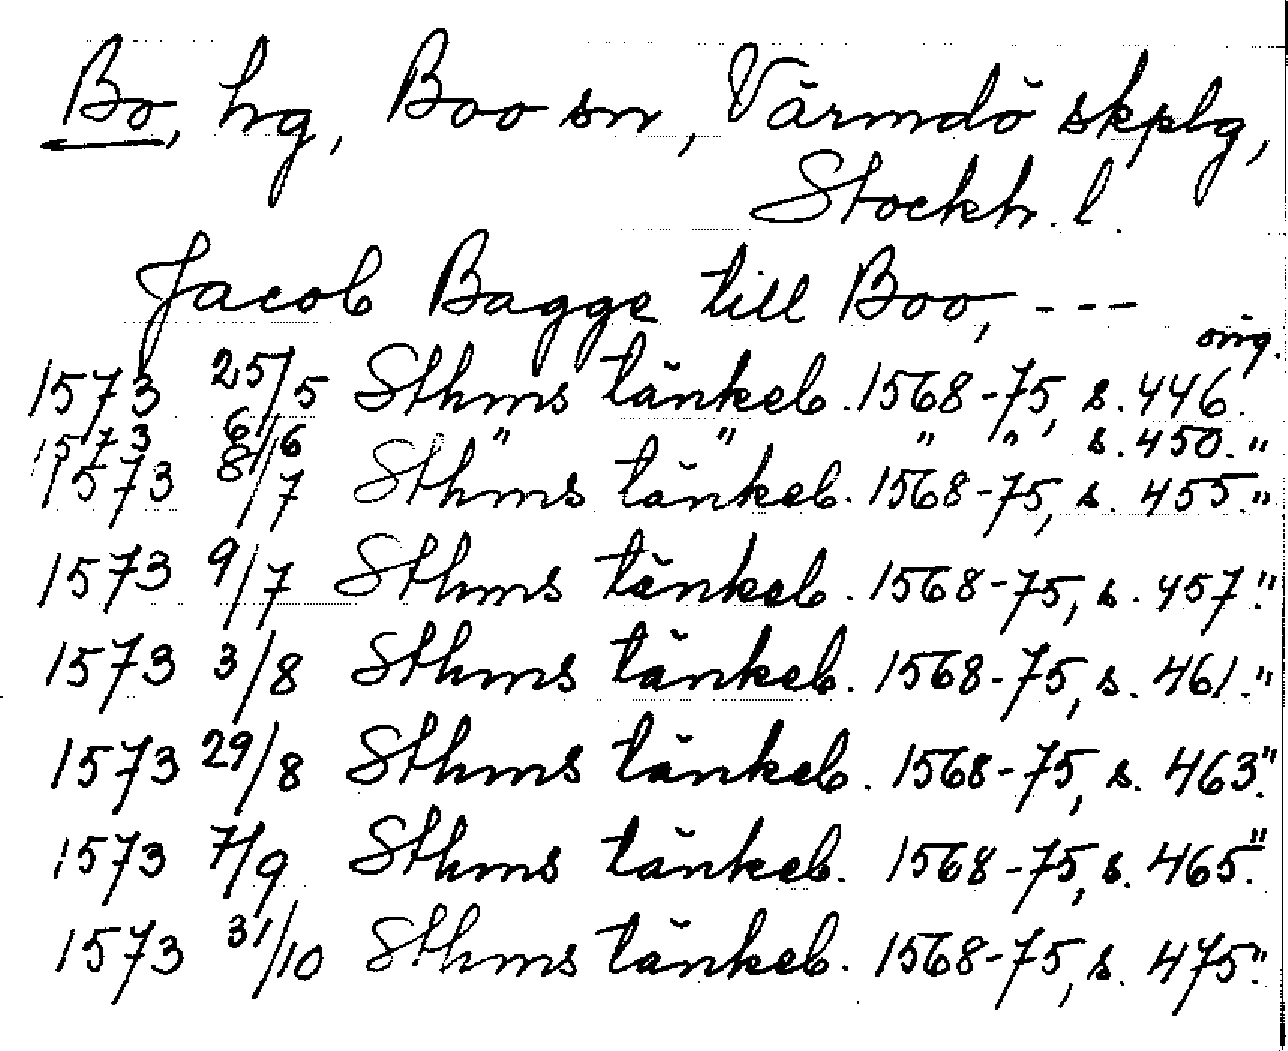 Bo, hg, Boo sn, Värmdö skplg,
Stockh. l.
Jacob Bagge till Boo, ---
orig.
1573 25/5 Sthms tänkeb. 1568-75, s. 446.
1573 6/6 " " " " s. 450. "
1573 8/7 Sthms tänkeb. 1568-75, s. 455. "
1573 9/7 Sthms tänkeb. 1568-75, s. 457. "
1573 3/8 Sthms tänkeb. 1568-75, s. 461. "
1573 29/8 Sthms tänkeb. 1568-75, s. 463. "
1573 7/9 Sthms tänkeb. 1568-75, s. 465. "
1573 31/10 Sthms tänkeb. 1568-75, s. 475. "